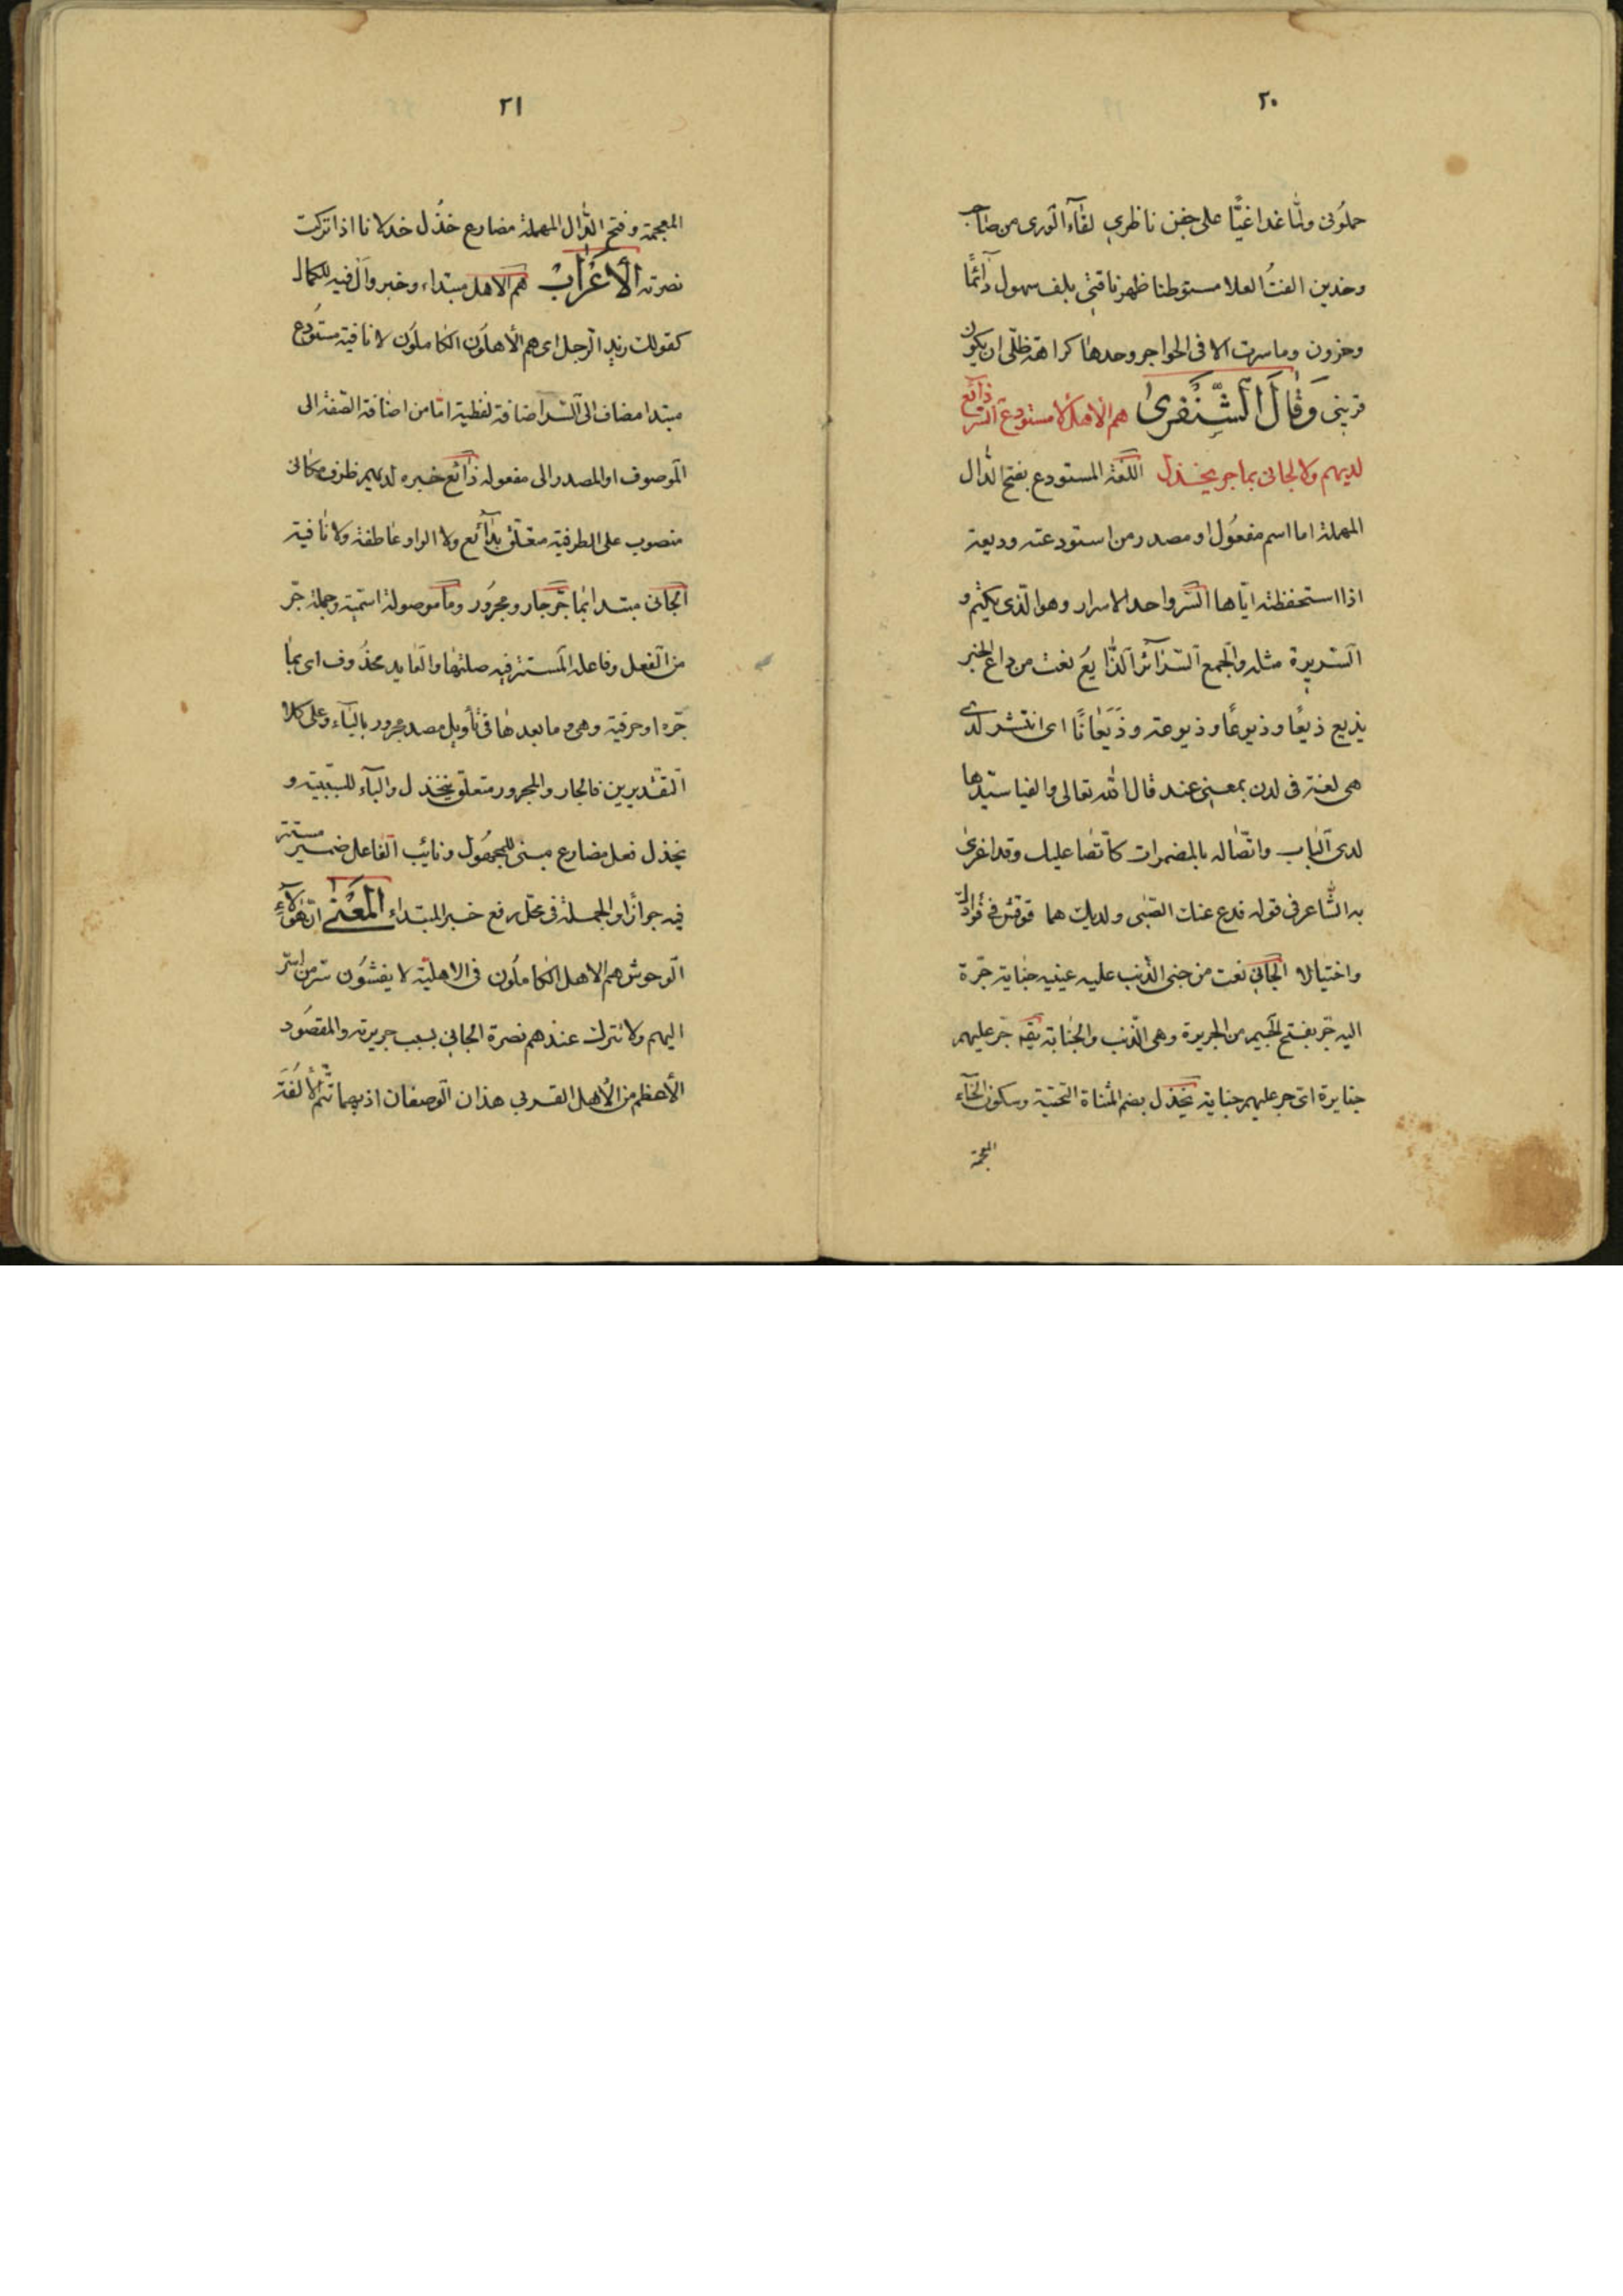 ٢٠
حملوني ولما غدا غيًّا على جفن ناظري لقاء الورى من صاحب
وخدين الفتُ العلا مستوطنا ظهر ناقتي بلف سهول دائمًا
وحزون وما سرت الا فى الهواجر وحدها كراهة ظلّى ان يكون
قريني وَقَالَ الشَّنْفَرىٰ هم الأهل لا مستودع السّرّ ذائع
لديهم ولا الجانى بما جر يخذل اللغة المستودع بفتح الدال
المهملة اما اسم مفعول او مصدر من استودعته وديعة
اذا استحفظته ايّاها السّر واحد الاسرار وهو الّذى يكتم و
السّريرة مثله والجمع السّرآئر الذّايع نعت من ذاع الخبر
يذيع ذيعًا وذيوعًا وذيوعة وذَيَعَانًا اى انتشر لدى
هى لغة فى لدن بمعنى عند قال الله تعالى والفيا سيّدها
لدى الباب واتّصاله بالمضمرات كاتّصا عليك وقد اغرى
به الشّاعر فى قوله فدع عنك الصّبى ولديك هما توقّش في فؤادك
واختيالا الجَانِي نعت من جنى الذّنب عليه يجنيه جناية جرّة
اليه جرّ بفتح الجيم من الجريرة وهى الذّنب والجناية يقه جرّ عليهم
جنايرة اى جر عليهم جناية يخذل بضم المثناة التحتية وسكون الخآء
المعجمة
٢١
المعجمة وفتح الذّال المهملة مضارع خذل خذلانا اذا تركت
نصرته الأَعْرَابُ هم الاهل مبتداء وخبر وال فيه للكمال
كقولك زيد الرجل اى هم الأهلون الكاملون لا نافية مستودع
مبتدا مضاف الى السّر اضافة لفظية امّا من اضافة الصّفة الى
الموصوف او المصدر الى مفعوله ذائع خبره لديهم ظرف مكانى
منصوب على الظرفية متعلّق بذآئع ولا الواو عاطفة ولا نافية
الجَانى مبتدا بما جرّ جار ومجرور وما موصولة اسميّة وجملة جرّ
من الفعل وفاعله المستتر فيه صلتها والعايد محذوف اى بما
جرّه او حرفية وهى وما بعدها فى تأويل مصدر مجرور بالبآء وعلى كلا
التّقديرين فالجار والمجرور متعلّق بيخذل والبآء للسّببيّة و
يخذل فعل مضارع مبنى للمجهول ونائب الفاعل ضمير مستتر
فيه جوازا والجملة فى محل رفع خبر المبتداء المَعْنىٰ انّ هؤلآء
الوحوش هم الاهل الكاملون فى الاهليّة لا يفشون سّر من اسّر
اليهم ولا تترك عندهم نصرة الجاني بسبب جريرته والمقصود
الأعظم من الأهل القربي هذان الوصفان اذ بهما تتم الألفة